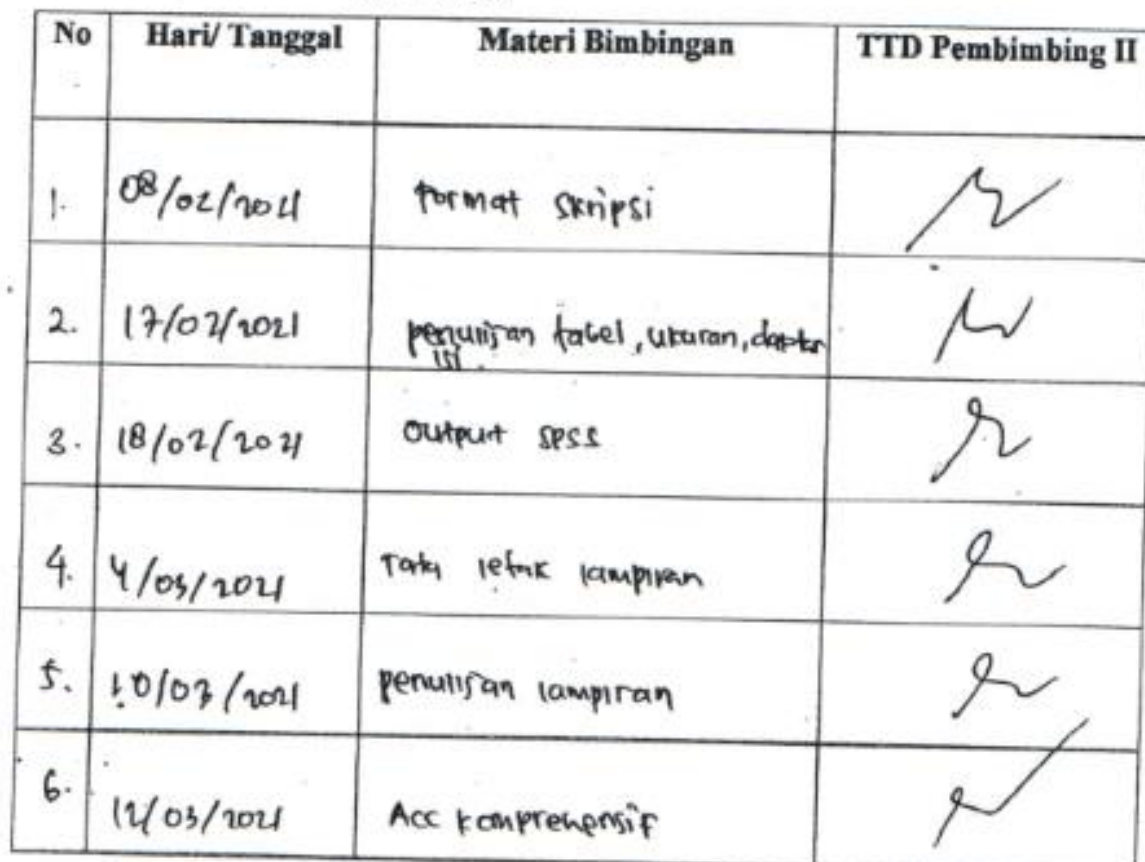 No Hari/ Tanggal Materi Bimbingan TTD Pembimbing II
1. 08/02/2021 Format skripsi
2. 17/02/2021 penulisan tabel, ukuran, daftar
isi.
3. 18/02/2021 Output SPSS
4. 4/03/2021 Tata letak lampiran
5. 10/03/2021 penulisan lampiran
6. 12/03/2021 Acc komprehensif